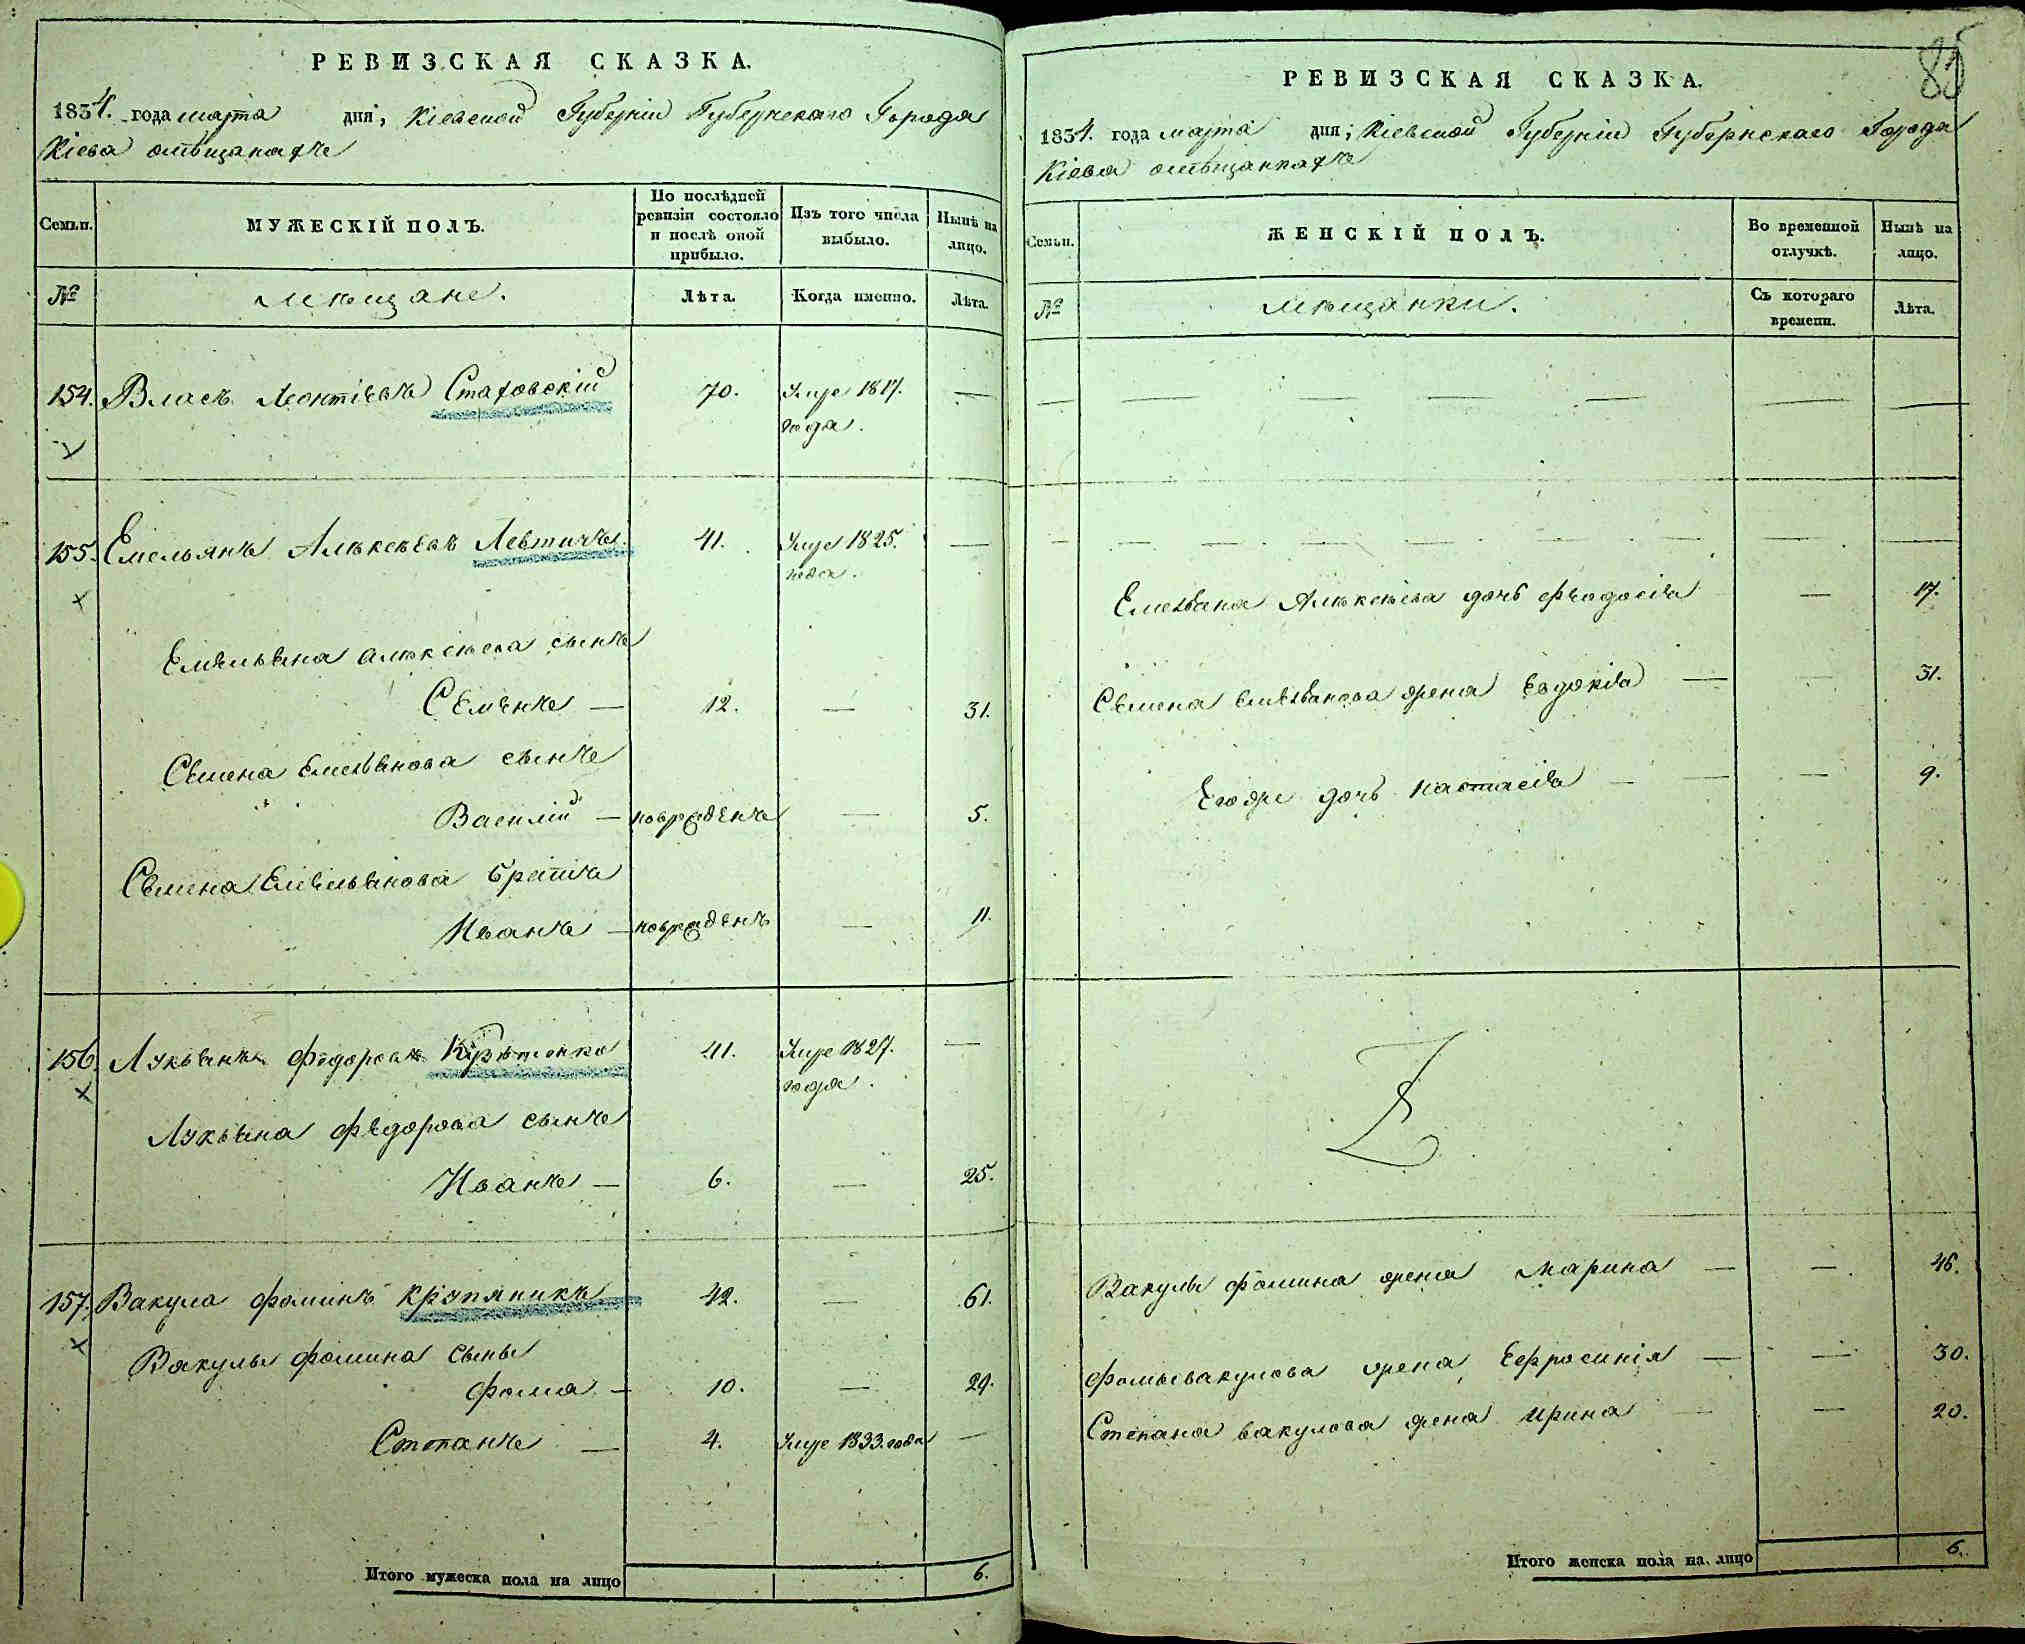 РЕВИЗСКАЯ СКАЗКА.
1834. года марта дня, Кіевской Губерніи Губернскаго Города
Кіева о мѣщанахъ
Семьи.
МУЖЕСКІЙ ПОЛЪ.
По послѣдней ревизіи состояло и послѣ оной прибыло.
Изъ того числа выбыло.
Нынѣ на лицо.
№
Мѣщане.
Лѣта.
Когда именно.
Лѣта.
154. Власъ Леонтіевъ 70. Умре 1817. —
года.
155. Емельянъ Алексѣевъ Левтичъ 41. Умре 1825. —
года.
Емельяна Алексѣева сынъ
Семенъ — 12. — 31.
Семена Емельянова сынъ
Василій — новрожденъ — 5.
Семена Емельянова братъ
Иванъ — новрожденъ — 11.
156. Лукьянъ Федоровъ 41. Умре 1827. —
года.
Лукьяна Федорова сынъ
Иванъ — 6. — 25.
157. Вакула Фоминъ Крупяникъ 42. — 61.
Вакулы Фомина сыны
Фома — 10. — 29.
Степанъ — 4. Умре 1833. года —
Итого мужеска пола на лицо 6.
85
РЕВИЗСКАЯ СКАЗКА.
1834. года марта дня, Кіевской Губерніи Губернскаго Города
Кіева о мѣщанкахъ
Семьи.
ЖЕНСКІЙ ПОЛЪ.
Во временной отлучкѣ.
Нынѣ на лицо.
№
Мѣщанки.
Съ котораго времени.
Лѣта.
Емельяна Алексѣева дочь Феодосія — 17.
Семена Емельянова жена Евдокія — — 31.
Его же дочь Настасія — — 9.
Вакулы Фомина жена Марина — — 46.
Фомы Вакулова жена Ефросинія — — 30.
Степана Вакулова жена Ирина — — 20.
Итого женска пола на лицо 6.